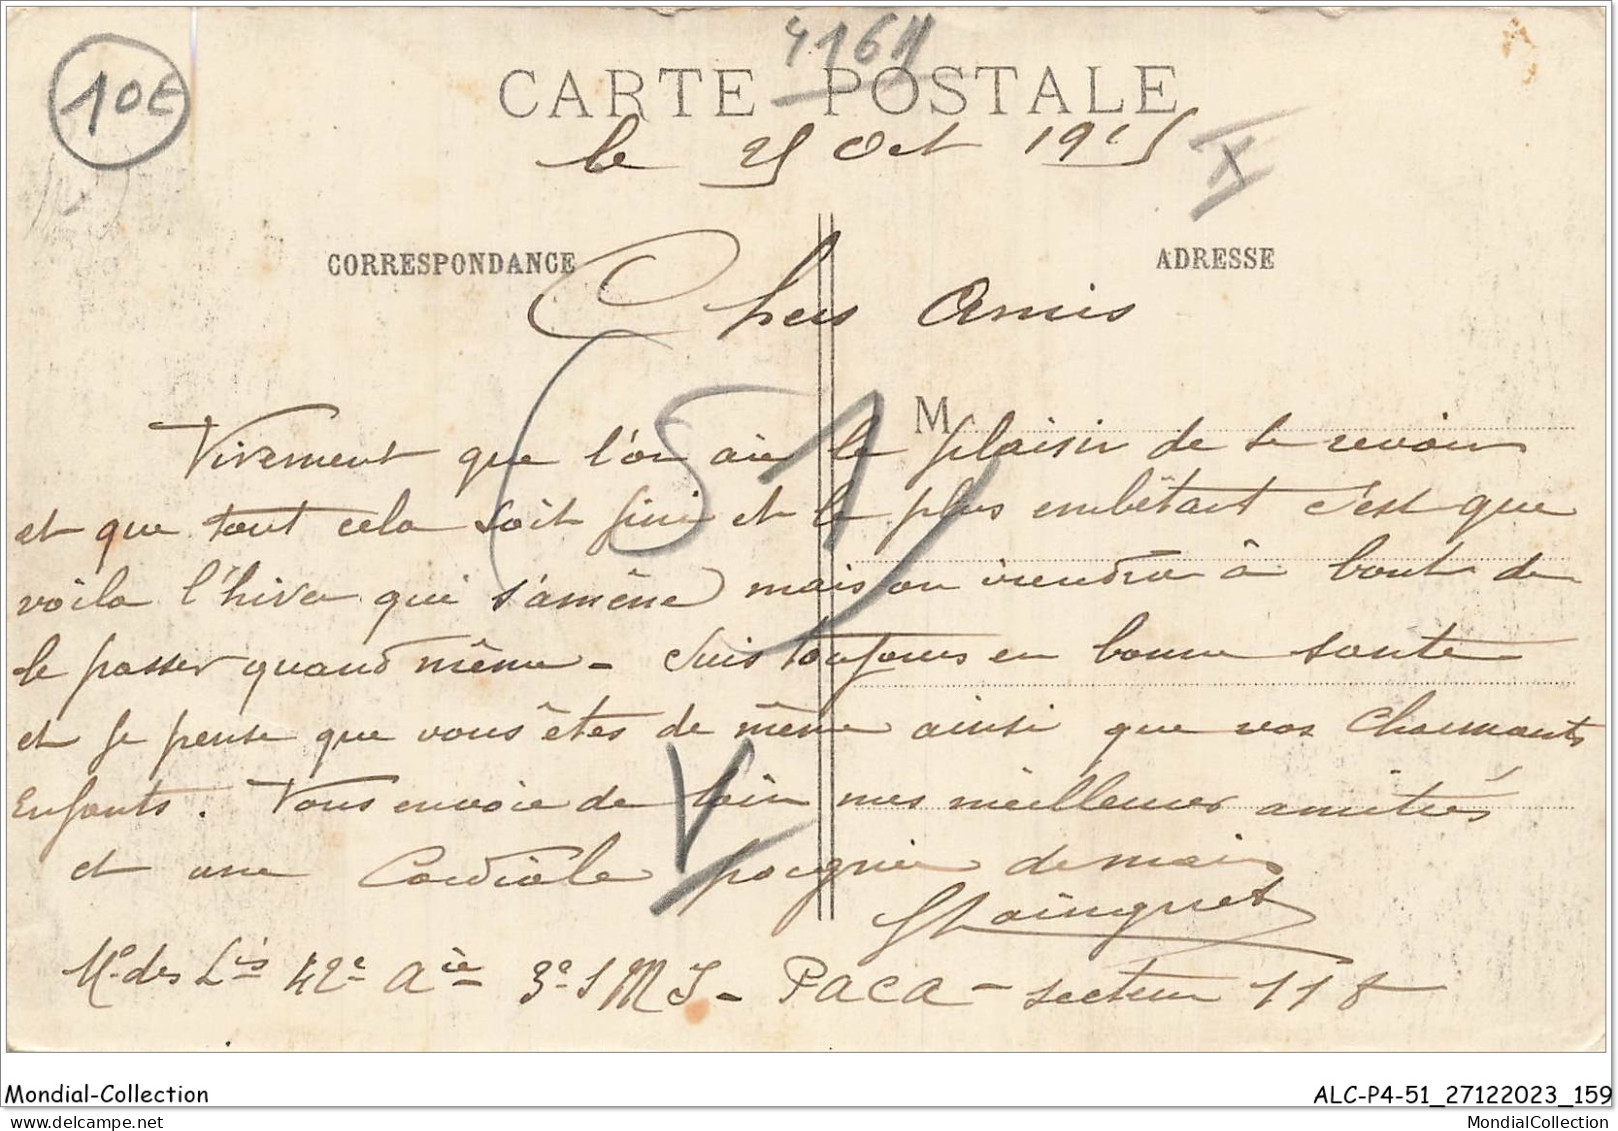 10€
4164
CARTE POSTALE
le 25 Oct 1915
X
CORRESPONDANCE
ADRESSE
Chers Amis
(51)
M
Vivement que l'on aie le plaisir de se revoir
et que tout cela soit fini et le plus embêtant c'est que
voila l'hiver qui s'amène mais on viendra à bout de
le passer quand même - Suis toujours en bonne sante
et je pense que vous êtes de même ainsi que vos Charmants
Enfants. Vous envoie de loin mes meilleures amitiés
et une Cordiale poignée de main
V
Mal des Lis 42e Aie 3e S M I - PACA - secteur 118
Mondial-Collection
ALC-P4-51_27122023_159
www.mondialcollection.com
MondialCollection